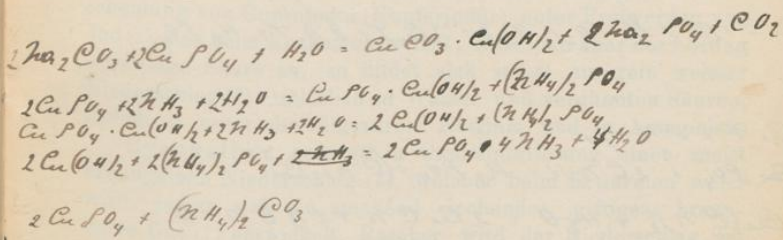 2Na₂CO₃ + 2CuSO₄ + H₂O = CuCO₃ · Cu(OH)₂ + 2Na₂SO₄ + CO₂
2CuSO₄ + 2NH₃ + 2H₂O = CuSO₄ · Cu(OH)₂ + (NH₄)₂SO₄
CuSO₄ · Cu(OH)₂ + 2NH₃ + 2H₂O = 2Cu(OH)₂ + (NH₄)₂SO₄
2Cu(OH)₂ + 2(NH₄)₂SO₄ + 2NH₃ = 2CuSO₄ · 4NH₃ + 4H₂O
2CuSO₄ + (NH₄)₂CO₃